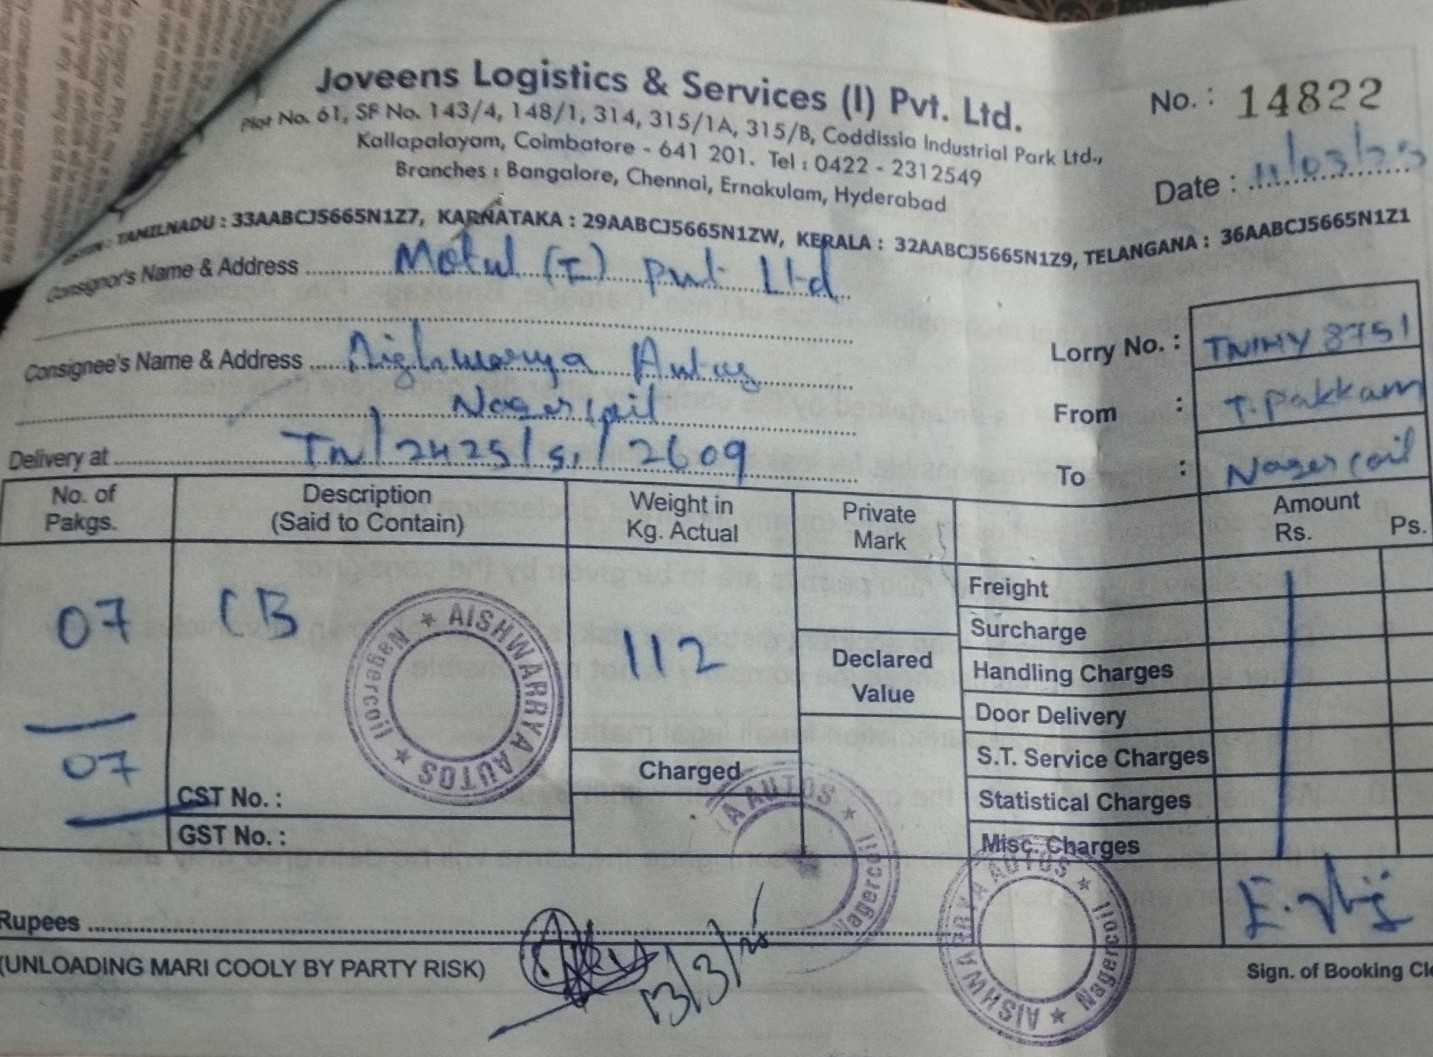 Joveens Logistics & Services (I) Pvt. Ltd.
No. : 14822
Plot No. 61, SF No. 143/4, 148/1, 314, 315/1A, 315/B, Coddissia Industrial Park Ltd.,
Kallapalayam, Coimbatore - 641 201. Tel : 0422 - 2312549
Branches : Bangalore, Chennai, Ernakulam, Hyderabad
Date : 11/03/25
TAMILNADU : 33AABCJ5665N1Z7, KARNATAKA : 29AABCJ5665N1ZW, KERALA : 32AABCJ5665N1Z9, TELANGANA : 36AABCJ5665N1Z1
Consignor's Name & Address Motul (I) Pvt Ltd
Consignee's Name & Address Aishwarya Autos
Nagercoil
Delivery at TN/2425/SI/2609
Lorry No. : TN14Y 8751
From : T. Pakkam
To : Nagercoil
No. of Pakgs.
Description (Said to Contain)
Weight in Kg. Actual
Private Mark
Amount
Rs. Ps.
07 CB 112
07
Declared Value
Charged
CST No. :
GST No. :
Freight
Surcharge
Handling Charges
Door Delivery
S.T. Service Charges
Statistical Charges
Misc. Charges
AISHWARRYA AUTOS
Nagercoil
A AUTOS
Nagercoil
AISHWARRYA AUTOS
Nagercoil
Rupees
(UNLOADING MARI COOLY BY PARTY RISK)
13/3/25
Sign. of Booking